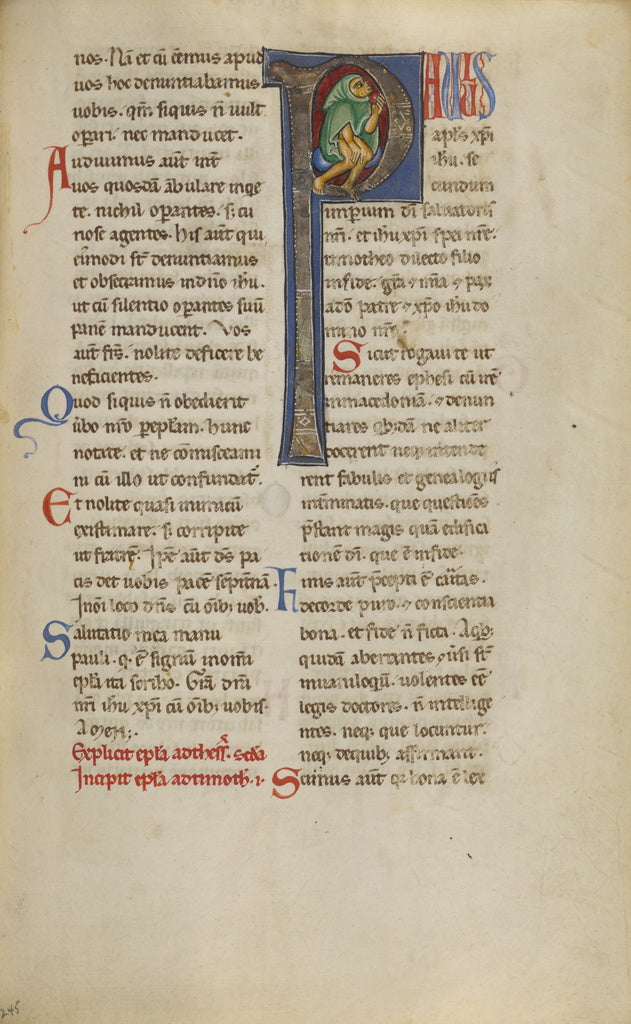 nos. Nā et cū eēmus apud
uos hoc denuntiabamus
uobis. qm̄ siquis n̄ uult
opari. nec manducet.
Audiuimus aūt int̄
uos quosdā ābulare inqe
te. nichil opantes. s; cu
riose agentes. His aūt qui
eiꝰmodi st̄ denuntiamus
et obsecramus indn̄o ihu.
ut cū silentio opantes suū
panē manducent. Vos
aūt frs̄. nolite deficere be
neficientes.
Quod siquis n̄ obedierit
ūbo nr̄o p epl̄am. hunc
notate. et ne cōmisceami
ni cū illo ut confundat.
Et nolite quasi inimicū
existimare. s; corripite
ut fratrē. Ipse aūt ds̄ pa
cis det uobis pacē sēpitnā
Inōni loco dn̄s cū oīb; uob.
Salutatio mea manu
pauli. q. ē signum inomī
epl̄a ita scribo. Gr̄a dn̄i
nr̄i ihu xp̄i cū oīb; uobis.
Amen.
Explicit epl̄a adthess. scd̄a
Incipit epl̄a adtimoth. i.
PAVLVS
apl̄s xp̄i
ihu. se
cundum
imperium dī saluatoris
nr̄i. et ihu xp̄i spei nr̄e.
timotheo dilecto filio
infide. gr̄a ⁊ mīa ⁊ pax
adō patre ⁊ xp̄o ihu do
mino nr̄o.
Sicut rogaui te ut
remaneres ephesi cū irē
inmacedoniā. ⁊ denun
tiares qbdā ne aliter
docerent neq; intende
rent fabulis et genealogiis
intēminatis. que questiōes
p̄stant magis quā edifica
tionē dī. que ē infide.
Finis aūt p̄cepti ē cāitas.
decorde puro. ⁊ conscientia
bona. et fide n̄ ficta. Aqb;
quidā aberrantes ⁊ ūsi st̄
inuaniloqū. uolentes eē
legis doctores. n̄ intellige
ntes. neq; que locuntur.
neq; dequib; affirmant.
Scimus aūt q bona ē lex
245